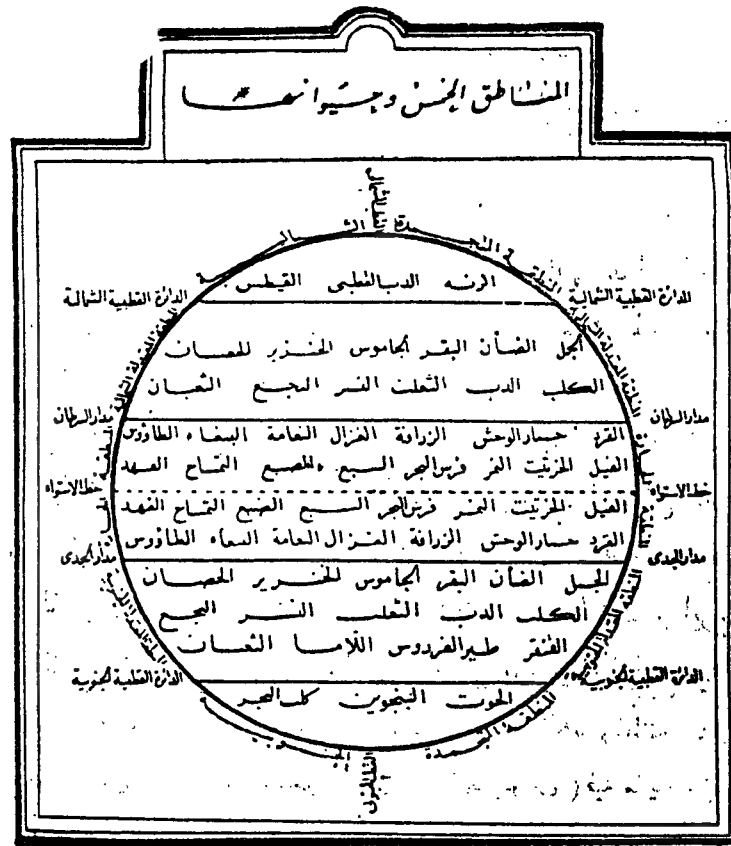 المناطق الخمس وحيواناتها
القطب الشمالي
المنطقة المتجمدة الشمالية
الرنه الدب القطبى القيطس
الدائرة القطبية الشمالية
الدائرة القطبية الشمالية
المنطقة المعتدلة الشمالية
المنطقة المعتدلة الشمالية
الجمل الضأن البقر الجاموس الخنزير الحصان
الكلب الدب الثعلب النسر البجع الثعبان
مدار السرطان
مدار السرطان
القرد حمار الوحش الزرافة الغزال النعامة الببغاء الطاؤوس
الفيل الخرتيت النمر فرس البحر السبع الضبع التمساح الفهد
خط الاستواء
خط الاستواء
المنطقة الحارة
المنطقة الحارة
الفيل الخرتيت النمر فرس البحر السبع الضبع التمساح الفهد
القرد حمار الوحش الزرافة الغزال النعامة الببغاء الطاؤوس
مدار الجدى
مدار الجدى
الجمل الضأن البقر الجاموس الخنزير الحصان
الكلب الدب الثعلب النسر البجع
القنقر طير الفردوس اللاما الثعبان
المنطقة المعتدلة الجنوبية
المنطقة المعتدلة الجنوبية
الدائرة القطبية الجنوبية
الدائرة القطبية الجنوبية
الحوت البنجوين كلب البحر
المنطقة المتجمدة الجنوبية
القطب الجنوبى